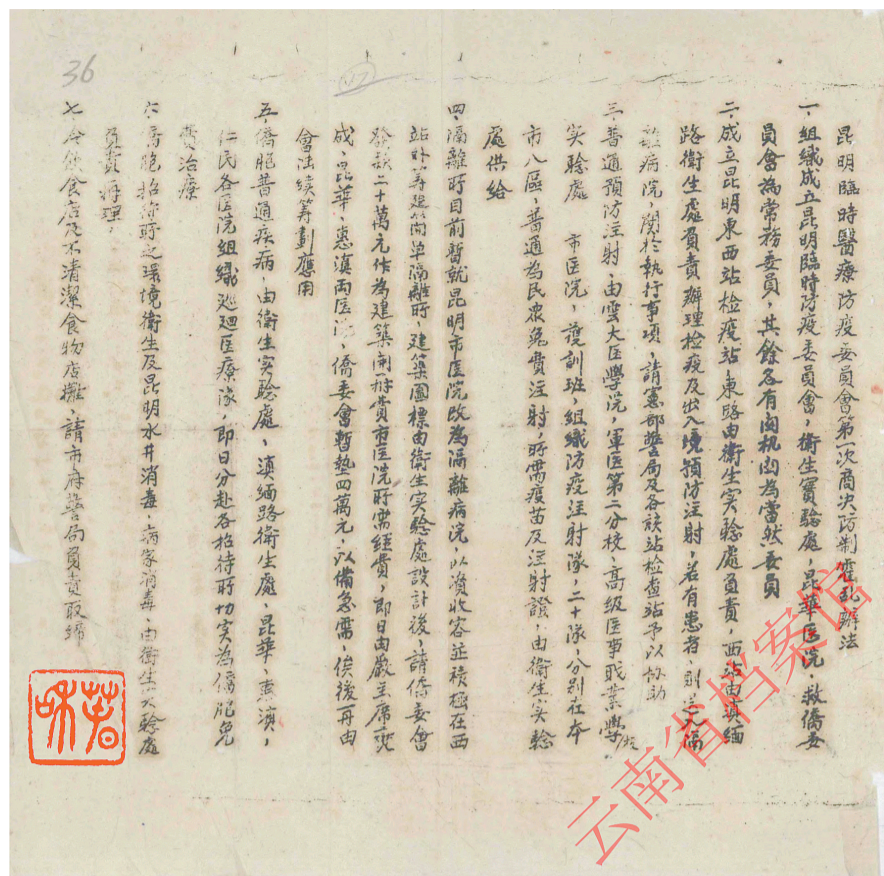 36
昆明臨時醫療防疫委員會第一次商决防制霍乱辦法
一、組織成立昆明臨時防疫委員會，衛生實驗處，昆華医院，救僑委
員會為常務委員，其餘各有関机関為當然委員
二、成立昆明東西站检疫站，東路由衛生实驗處負責，西站由滇緬
路衛生處負責辦理检疫及出入境預防注射，若有患者，則送入隔
離病院，関於执行事項，請憲部警局及各該站检查站予以协助
三、普通預防注射，由雲大医學院，軍医第二分校、高级医事职業學校
实驗處　市医院，護訓班，組織防疫注射隊，二十隊，分别在本
市八區，普通為民衆免費注射，所需疫苗及注射證，由衛生实驗
處供给
四、隔離所目前暫就昆明市医院改為隔離病院，以資收容並積極在西
站外筹建簡单隔離所，建築圖標由衛生实驗處設計後，請僑委會
發款二十萬元作為建築開辦費市医院所需經費，即日由嚴主席
成、昆華、惠滇両医院，僑委會暫墊四萬元，以備急需，俟後再由
會法续筹劃應用
五、僑胞普通疾病，由衛生实驗處、滇緬路衛生處、昆華、惠滇，
仁民各医院組織巡廻医療隊，即日分赴各招待所切实為僑胞免
費治療
六、僑胞招待所之環境衛生及昆明水井消毒、病家消毒、由衛生实驗處
負責办理，
七、冷飲食店及不清潔食物店攤，請市府警局負責取締
云南省档案馆